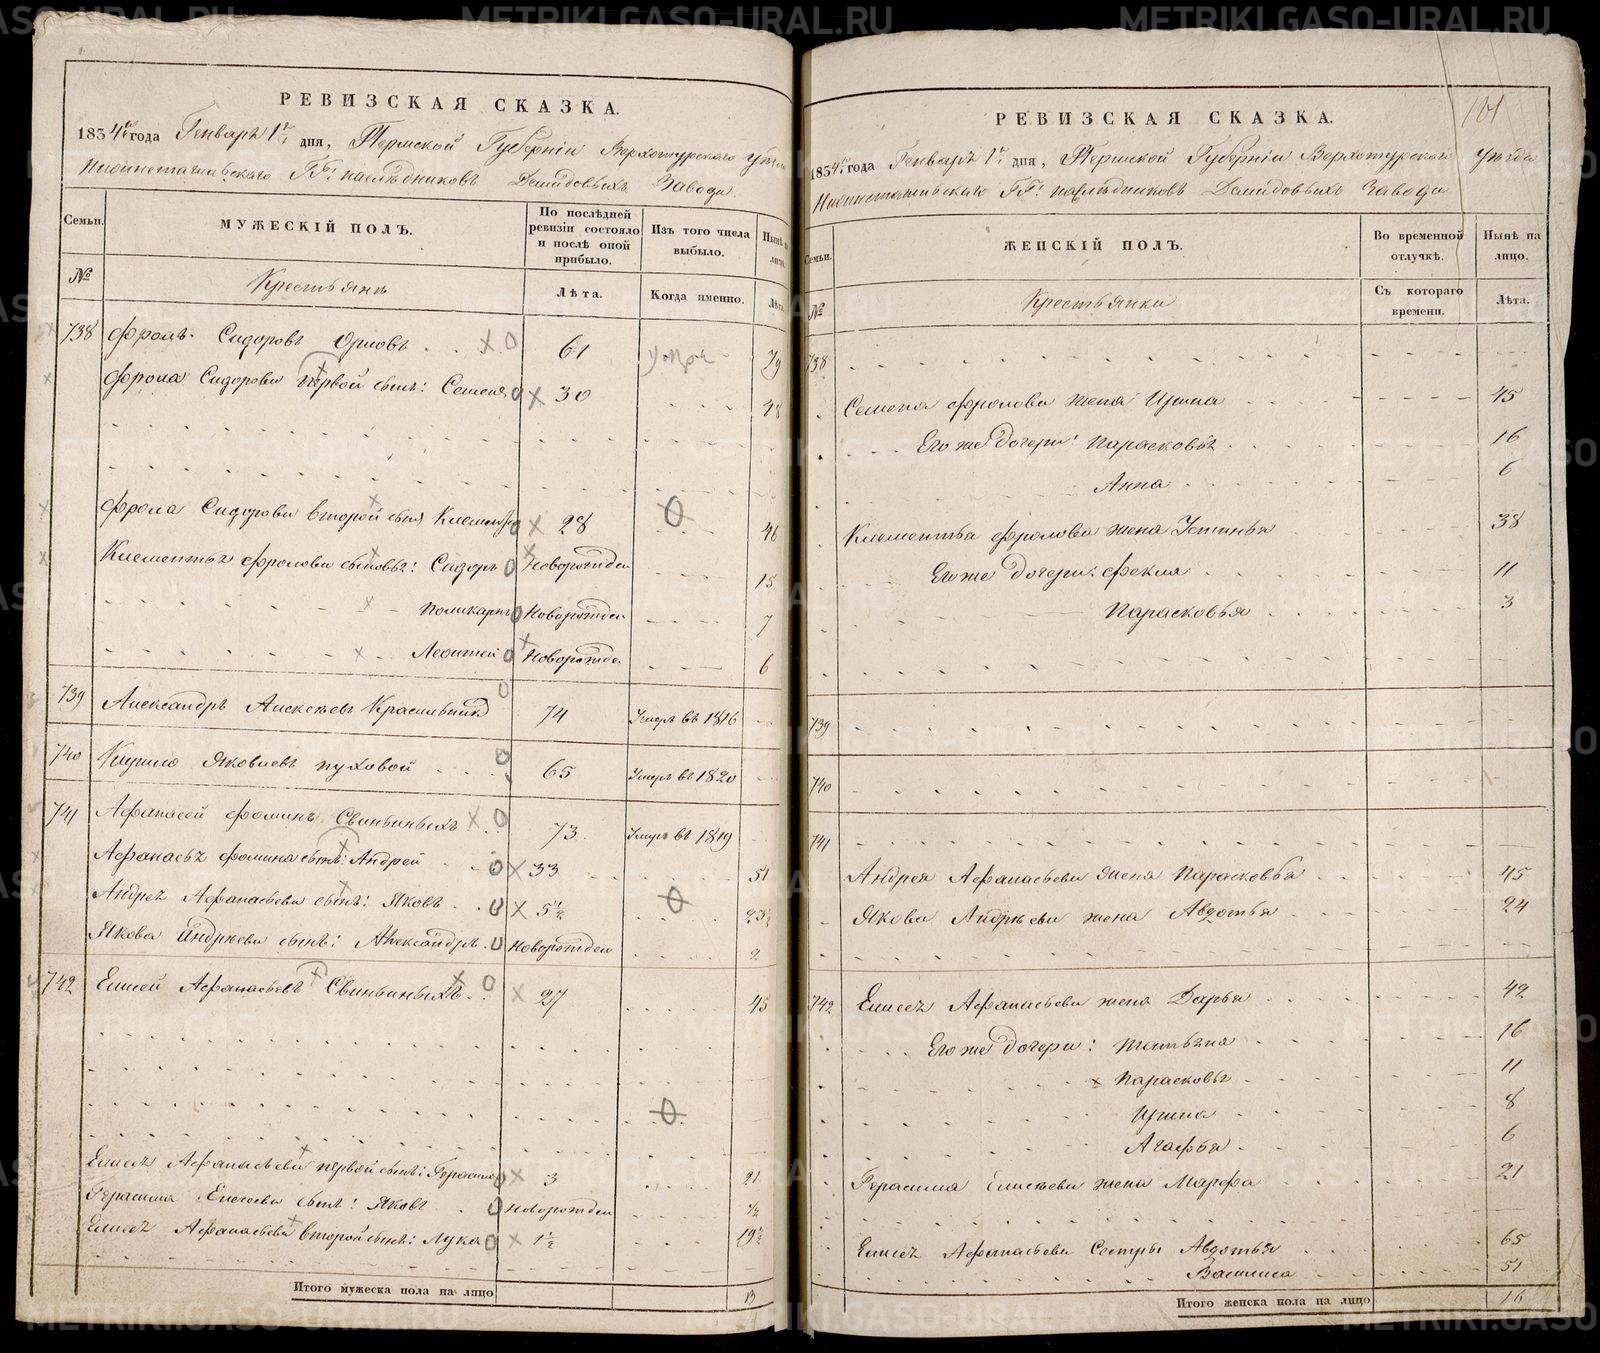 РЕВИЗСКАЯ СКАЗКА.
1834го года Генваря 1го дня, Пермской Губернiи Верхотурскаго уѣзда
Нижнетагильскаго ГГ: наслѣдниковъ Демидовыхъ Завода.
Семьи.
МУЖЕСКIЙ ПОЛЪ.
По послѣдней ревизiи состояло и послѣ оной прибыло.
Изъ того числа выбыло.
Нынѣ на лицо.
№
Крестьянъ
Лѣта.
Когда именно.
Лѣта.
738 Фролъ Сидоровъ Орловъ 61 79
Фрола Сидорова первой сынъ: Семенъ 30 48
Фрола Сидорова второй сынъ Климентiй 28 46
Климентья Фролова сыновья: Сидоръ Новорожден 15
Поликарпъ Новорожден 7
Леонтей Новорожден 6
739 Александръ Алексѣевъ Красильник 74 Умеръ въ 1816
740 Кирило Яковлевъ Пуховой 65 Умеръ въ 1820
741 Афанасей Фоминъ Свиньиныхъ 73 Умеръ въ 1819
Афанасья Фомина сынъ: Андрей 33 51
Андрея Афанасьева сынъ: Яковъ 5½ 23½
Якова Андрѣева сынъ: Александръ Новорожден 2
742 Елисей Афанасьевъ Свиньиныхъ 27 45
Елисея Афанасьева первой сынъ: Герасимъ 3 21
Герасима Елисѣева сынъ: Яковъ Новорожден ½
Елисея Афанасьева второй сынъ: Лука 1½ 19½
Итого мужеска пола на лицо 13
101
РЕВИЗСКАЯ СКАЗКА.
1834го года Генваря 1го дня, Пермской Губернiи Верхотурскаго уѣзда
Нижнетагильскаго ГГ: наслѣдниковъ Демидовыхъ Завода
Семьи.
ЖЕНСКIЙ ПОЛЪ.
Во временной отлучкѣ.
Нынѣ на лицо.
№
Крестьянки
Съ котораго времени.
Лѣта.
738
Семена Фролова жена Ирина 45
Его же дочери: Парасковья 16
Анна 6
Климентья Фролова жена Устинья 38
Его же дочери: Фекла 11
Парасковья 3
739
740
741
Андрея Афанасьева жена Парасковья 45
Якова Андрѣева жена Авдотья 24
742 Елисея Афанасьева жена Дарья 42
Его же дочери: Татьяна 16
Парасковья 11
Ирина 8
Агафья 6
Герасима Елисѣева жена Марфа 21
Елисея Афанасьева Сестры Авдотья 65
Василиса 51
Итого женска пола на лицо 16
METRIKI.GASO-URAL.RU